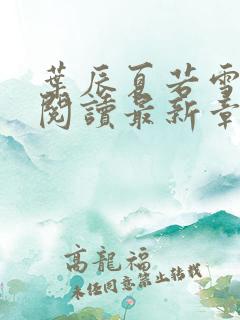 葉辰夏若雪
閱讀最新章
高龍福
未经同意禁止转载